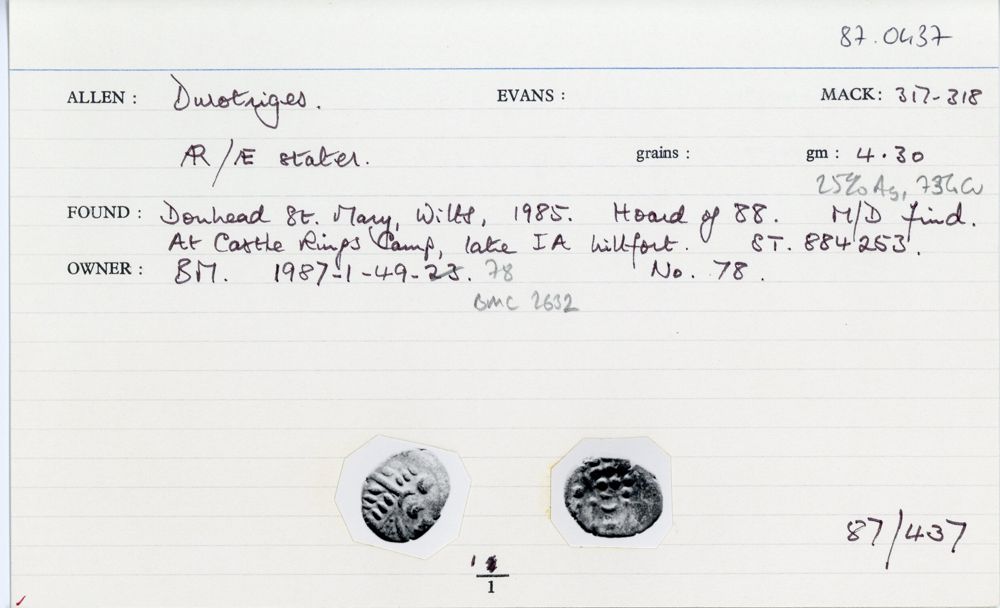 87.0437
ALLEN : Durotriges. EVANS : MACK: 317-318
ÆR/Æ stater. grains : gm : 4.30
25% Ag, 73% Cu
FOUND : Donhead St. Mary, Wilts, 1985. Hoard of 88. M/D find.
At Castle Rings Camp, late IA hillfort. ST. 884253.
OWNER : BM. 1987-1-49-23. 78 No. 78.
BMC 2632
1
1
87/437